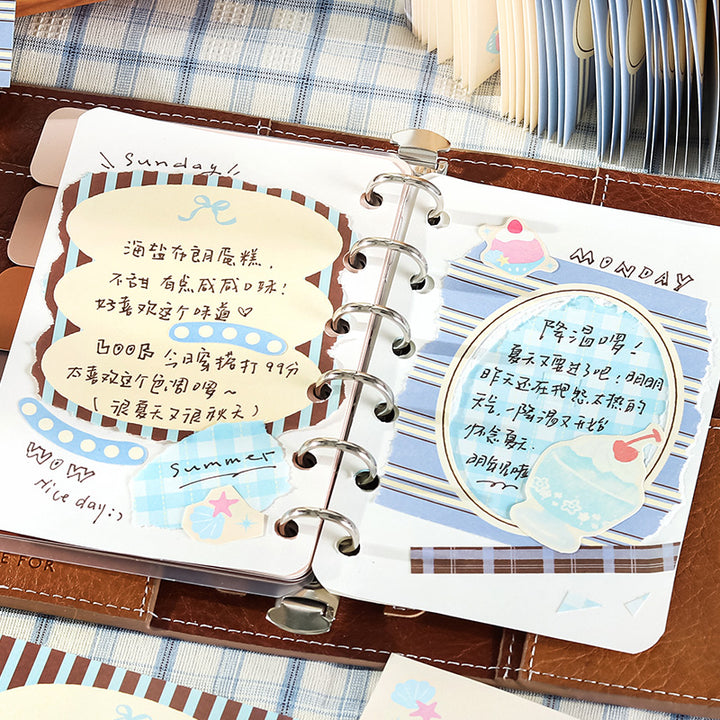 Sunday
海盐布朗蛋糕,
不甜 有焦咸咸口味!
好喜欢这个味道♡
今日蜜搭打99分
太喜欢这个色调啰~
(很夏天又很秋天)
WOW
Nice day :)
summer
MONDAY
降温啰!
夏天又要过了吧,明明
昨天还在抱怨太热的
天气,降温又开始
怀念夏天.
明年见啦
FOR